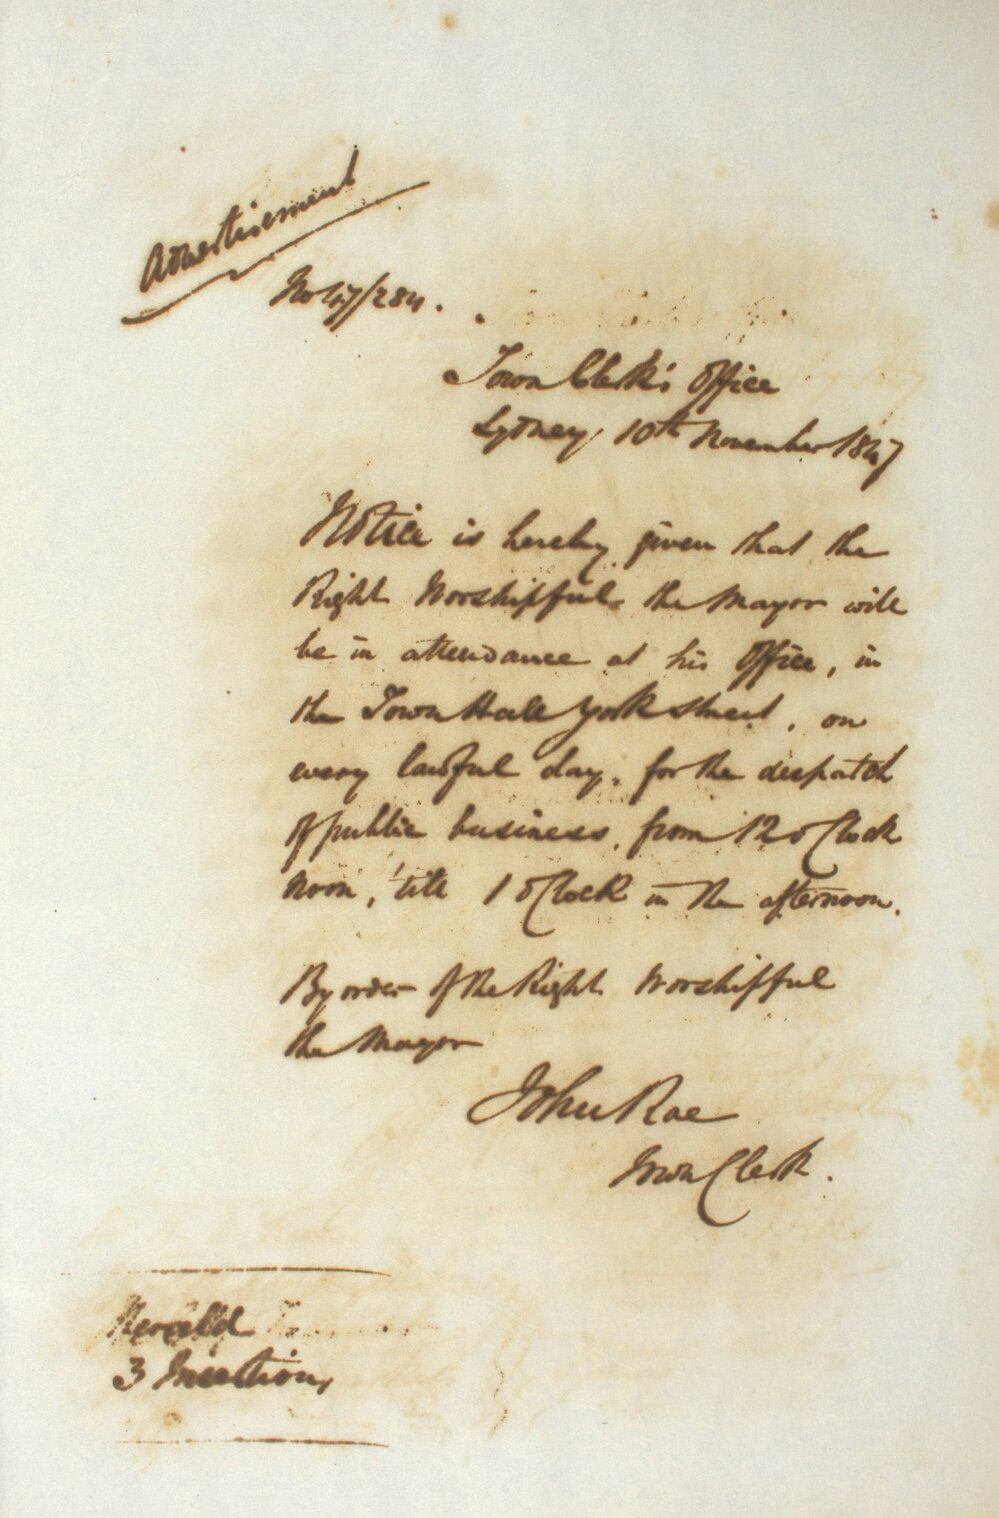 Advertisement
No 47/284.
Town Clerk's Office
Sydney, 10th November 1847
Notice is hereby given that the
Right Worshipful the Mayor will
be in attendance at his Office, in
the Town Hall York Street, on
every lawful day, for the despatch
of public business, from 12 o Clock
noon, 'till 1 o Clock in the afternoon.
By order of the Right Worshipful
the Mayor
John Rae
Town Clerk.
Herald
3 Insertions